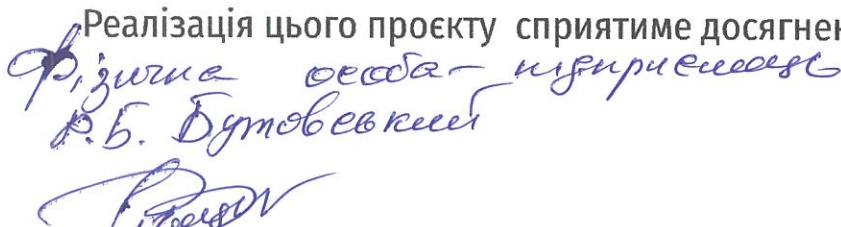 Реалізація цього проєкту сприятиме досягнен
Фізична особа – підприємець
Р.Б. Бутовський